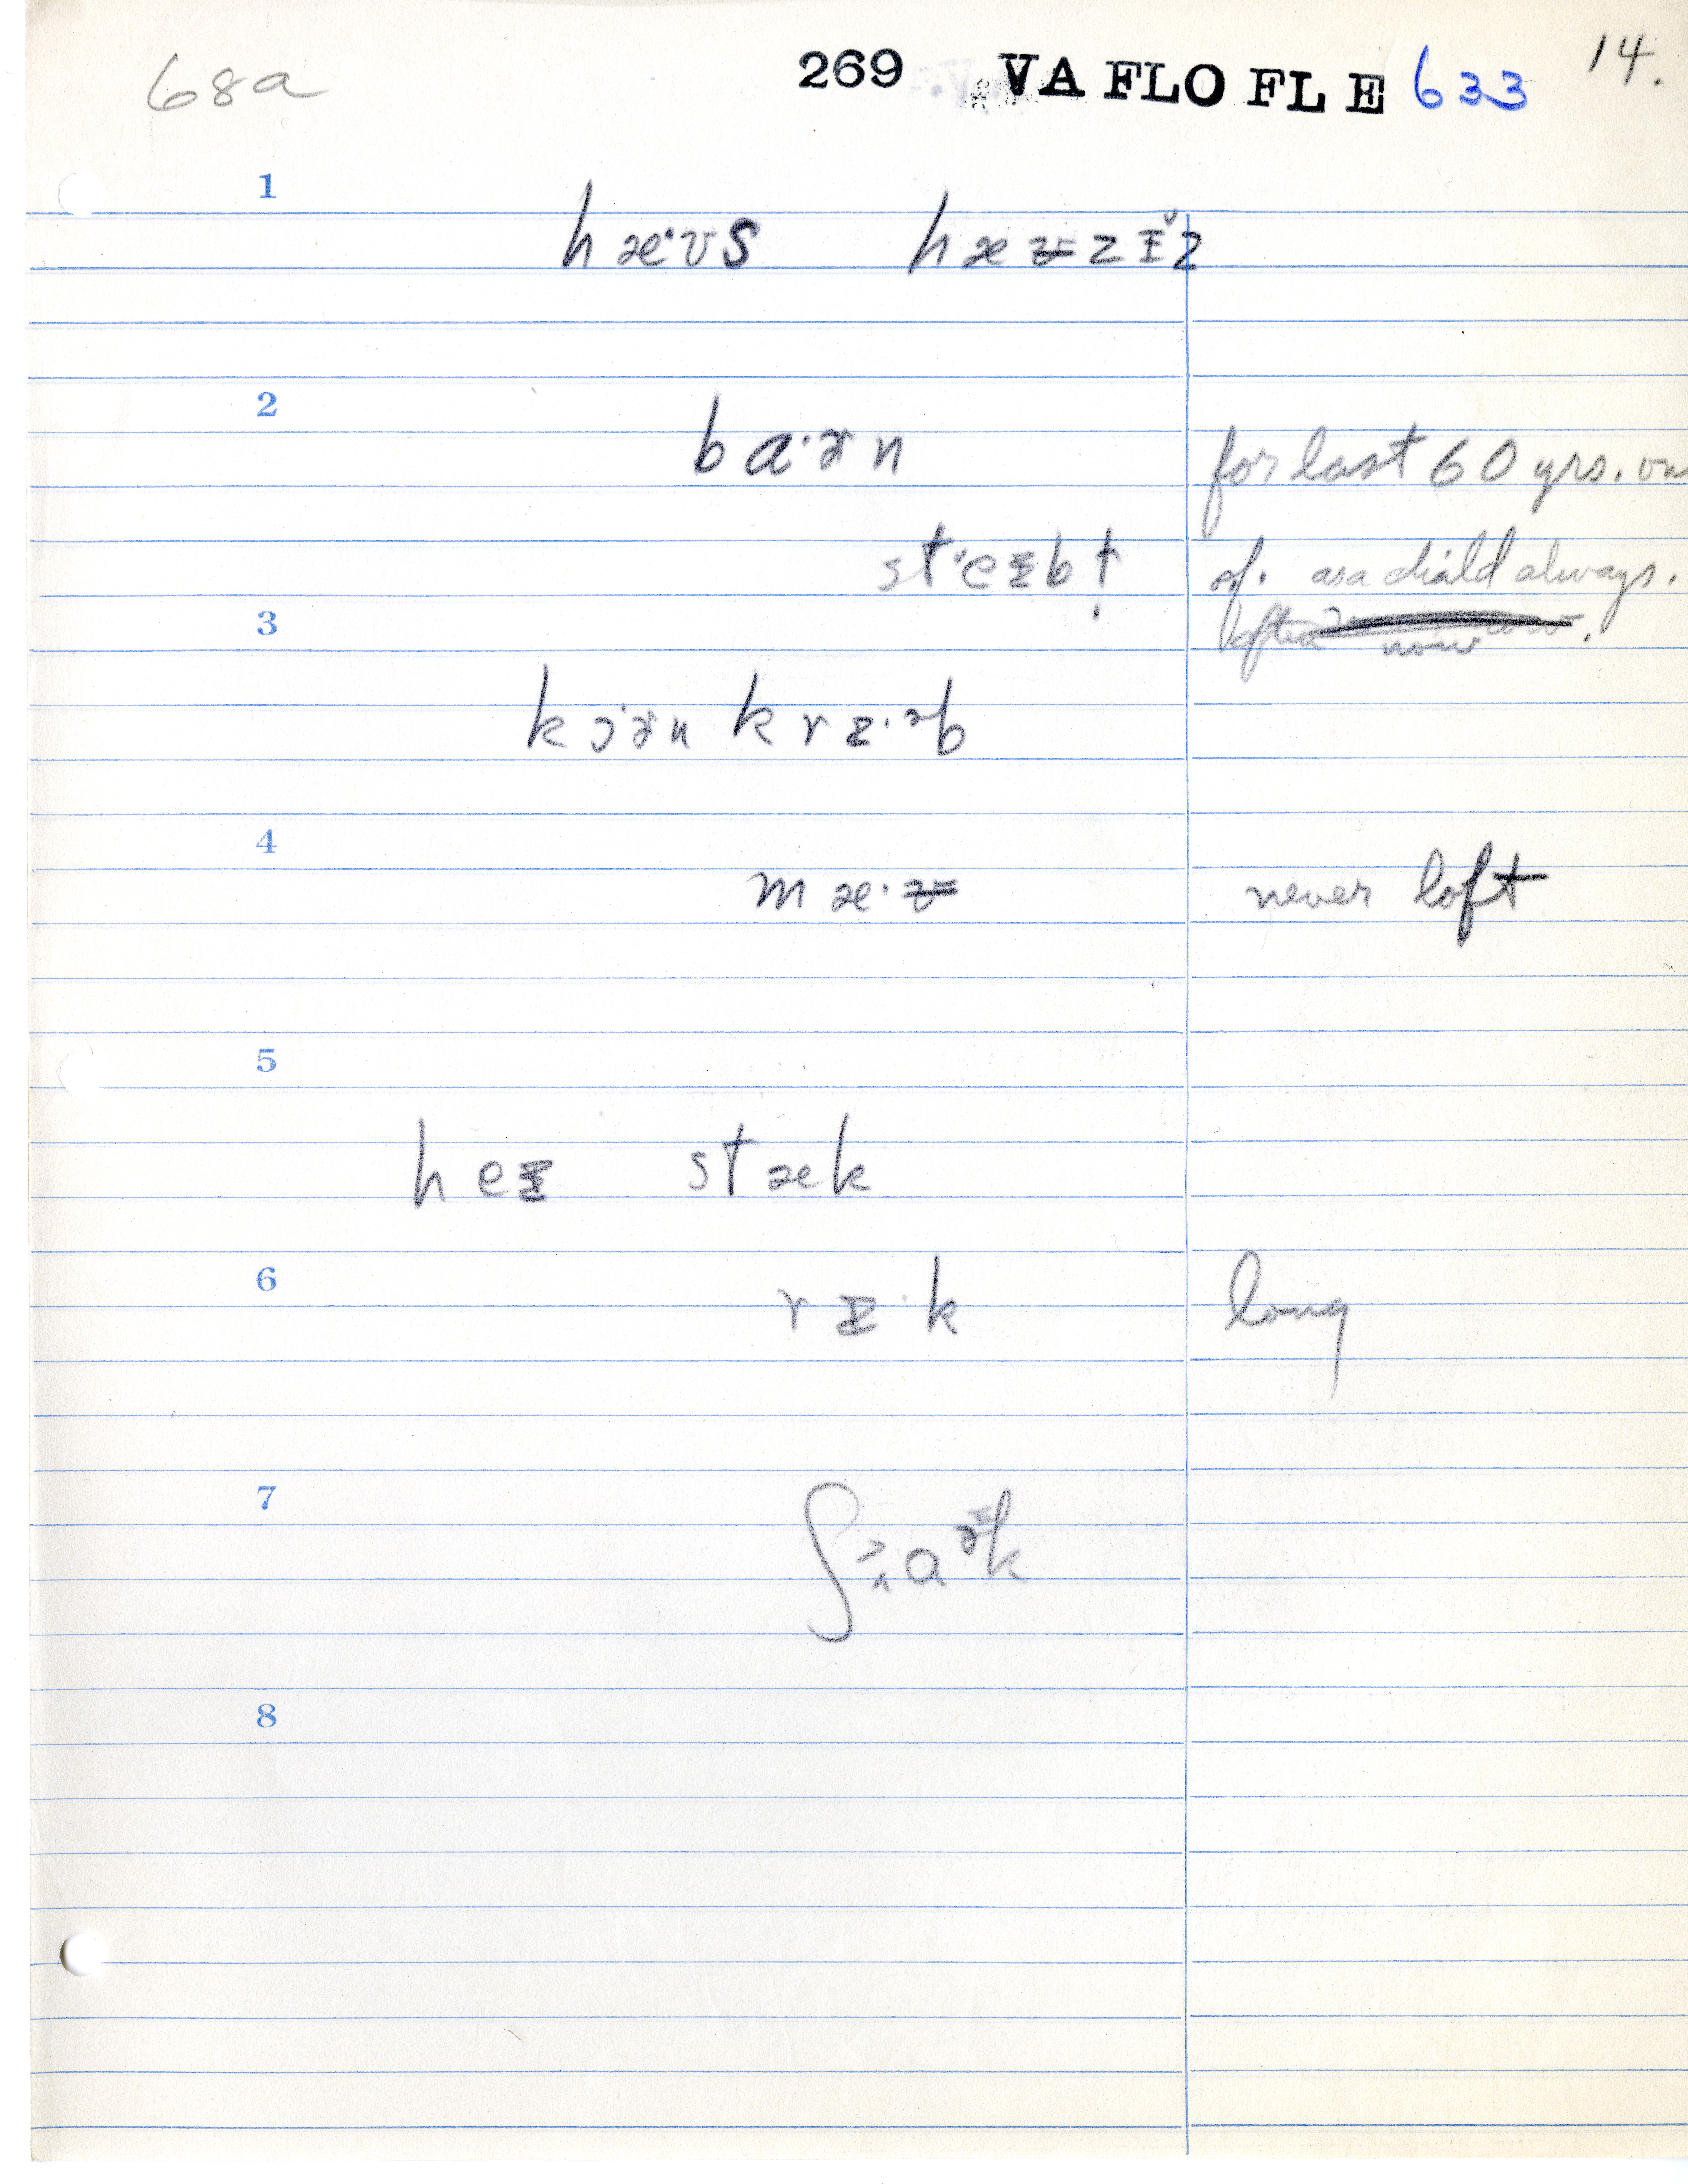 68a 269 VA FLO FLE 633 14.
1
hæ·ʊs hæᵿzɪ̆z
2
ba·ɚn for last 60 yrs.
st‘eɪbɫ̣ of. as a child always.
3 often now.
kɔ·ɚn krɪ·ᵊb
4
mæ·ᵿ never loft
5
heɪ stæk
6
rɪ·k long
7
ʃ
8